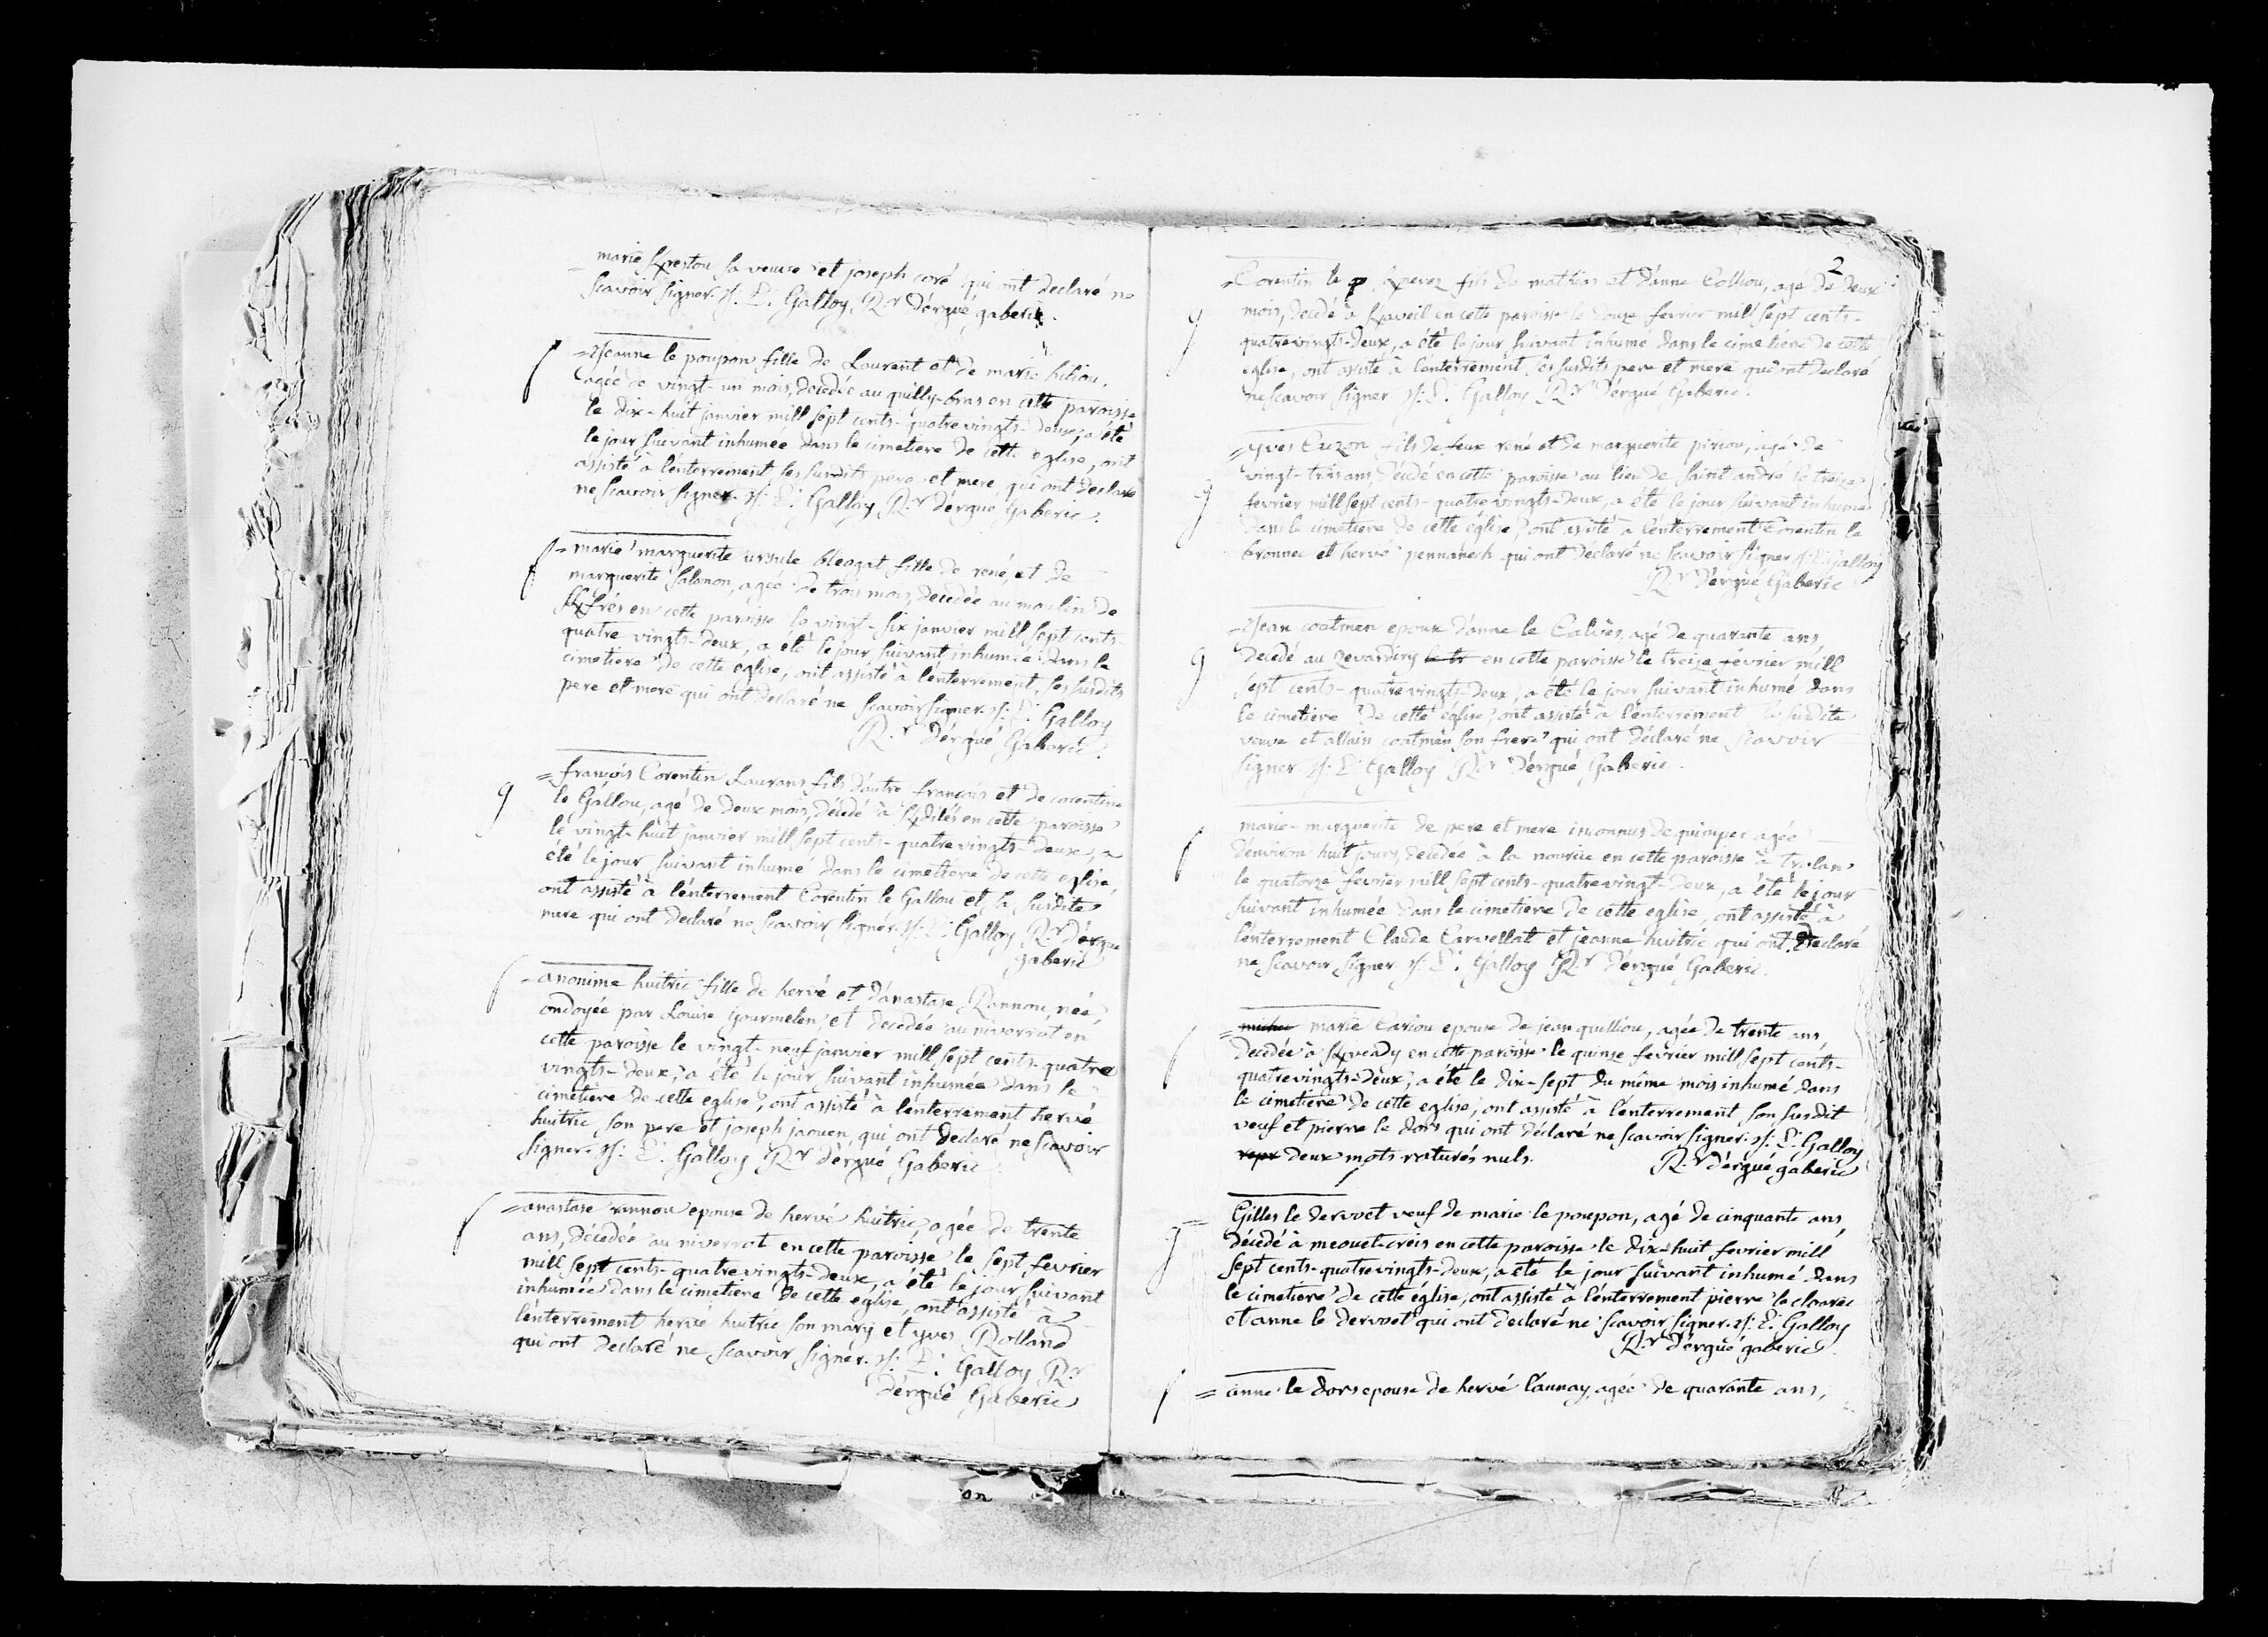 marie Kprestou sa veuve et joseph coré qui ont declaré ne
scavoir signer. H: L: Galloy, R.r d'ergué gaberic.
f
=Jeanne le poupon fille de Laurent et de marie hiliou,
agée de vingt-un mois, decedée au quilly-bras en cette paroisse
le dix-huit janvier mill sept cents-quatrevingts-deux, a été
le jour suivant inhumée dans le cimetiere de cette eglise, ont
assisté à l'enterrement les susdits pere et mere qui ont declaré
ne scavoir signer. H: L: Galloy R.r d'ergué Gaberic.
f
= marie marguerite ursule bleogat fille de rené, et de
marguerite salomon, agée de trois mois, decedée au moulin de
Kfrés en cette paroisse le vingt-six janvier mill sept cents-
quatre vingts-deux, a été le jour suivant inhumée dans le
cimetiere de cette eglise, ont assisté à l'enterrement, les susdits
pere et mere qui ont declaré ne scavoir signer. H: L: Galloy
R.r d'ergué Gaberic.
g
= françois Corentin Laurans fils d'autre françois et de corentine
le Gallou, agé de deux mois, décédé à Kdilés en cette paroisse
le vingt-huit janvier mill sept cents-quatrevingts-deux, a
été le jour suivant inhumé dans le cimetiere de cette eglise,
ont assisté à l'enterrement Corentin le Gallou et la susdite
mere qui ont declaré ne scavoir signer. H: L: Galloy R.r d'ergué
gaberic
f
= anonime huitric fille de hervé et d'anastase Rannou, née,
ondoyée par Louise gourmelen, et decedée au niverrot en
cette paroisse le vingt-neuf janvier mill sept cents-quatre
vingts-deux, a été le jour suivant inhumée dans le
cimetiere de cette eglise, ont assisté à l'enterrement hervé
huitric son pere et joseph jaouen, qui ont declaré ne scavoir
signer. H: L: Galloy R.r d'ergué Gaberic
f
= anastase rannou epouse de hervé huitric, agée de trente
ans, décedée au niverrot en cette paroisse le sept fevrier
mill sept cents-quatrevingts-deux, a été le jour suivant
inhumée dans le cimetiere de cette eglise, ont assisté à
l'enterrement hervé huitric son mary et yves Rolland
qui ont declaré ne scavoir signer. H: L: Galloy R.r
d'ergué Gaberic
on
2
g
=Corentin le p Kperez fils de mathias et d'anne Colliou, agé de deux
mois, decedé à Kaveil en cette paroisse le douze fevrier mill sept cents-
quatrevingts-deux, a été le jour suivant inhumé dans le cimetiere de cette
eglise, ont assisté à l'enterrement les susdits pere et mere qui ont declaré
ne scavoir signer H: L: Galloy R.r d'ergué Gaberic.
g
= yves Euzon fils de feux rené et de marguerite piriou, agé de
vingt-trois ans, decedé en cette paroisse au lieu de saint andré le treize
fevrier mill sept cents-quatrevingts-deux, a été le jour suivant inhumé
dans le cimetiere de cette église, ont assisté à l'enterrement Corentin le
bronnec et hervé pennanech qui ont declaré ne scavoir signer H: L: Galloy
R.r d'ergué Gaberic
g
= Jean coatmen epoux d'anne le Calvès, agé de quarante ans,
decedé au Zevardiry le tr en cette paroisse le treize février mill
sept cents-quatrevingts-deux, a été le jour suivant inhumé dans
le cimetiere de cette église, ont assisté à l'enterrement la susdite
veuve et allain coatmen son frere qui ont déclaré ne scavoir
signer H: L: Galloy R.r d'ergué Gaberic.
f
marie-marguerite de pere et mere inconnus de quimper agée
d'environ huit jours, decedée à la nourice en cette paroisse à trolan
le quatorze fevrier mill sept cents-quatrevingt-deux, a été le jour
suivant inhumée dans le cimetiere de cette eglise, ont assisté à
l'enterrement Claude Carvellat et jeanne huitric qui ont declaré
ne scavoir signer H: L: Galloy R.r d'ergué Gaberic.
f
= michu marie Cariou epouse de jean quilliou, agée de trente ans,
decedée à Kvendy en cette paroisse le quinze fevrier mill sept cents-
quatrevingts-deux, a été le dix-sept du même mois inhumé dans
le cimetiere de cette eglise, ont assisté à l'enterrement son susdit
veuf et pierre le dors qui ont déclaré ne scavoir signer. H: L: Galloy
repr deux mots raturés nuls. R.r d'ergué gaberic
g
= Gilles le dervoet veuf de marie le poupon, agé de cinquante ans,
décédé à meouet-creis en cette paroisse le dix-huit fevrier mill
sept cents-quatrevingts-deux, a été le jour suivant inhumé dans
le cimetiere de cette église, ont assisté à l'enterrement pierre le cloarec
et anne le dervoet qui ont declaré ne scavoir signer. H: L: Galloy
R.r d'ergué gaberic
f
= anne le dors epouse de hervé l'aunay, agée de quarante ans,